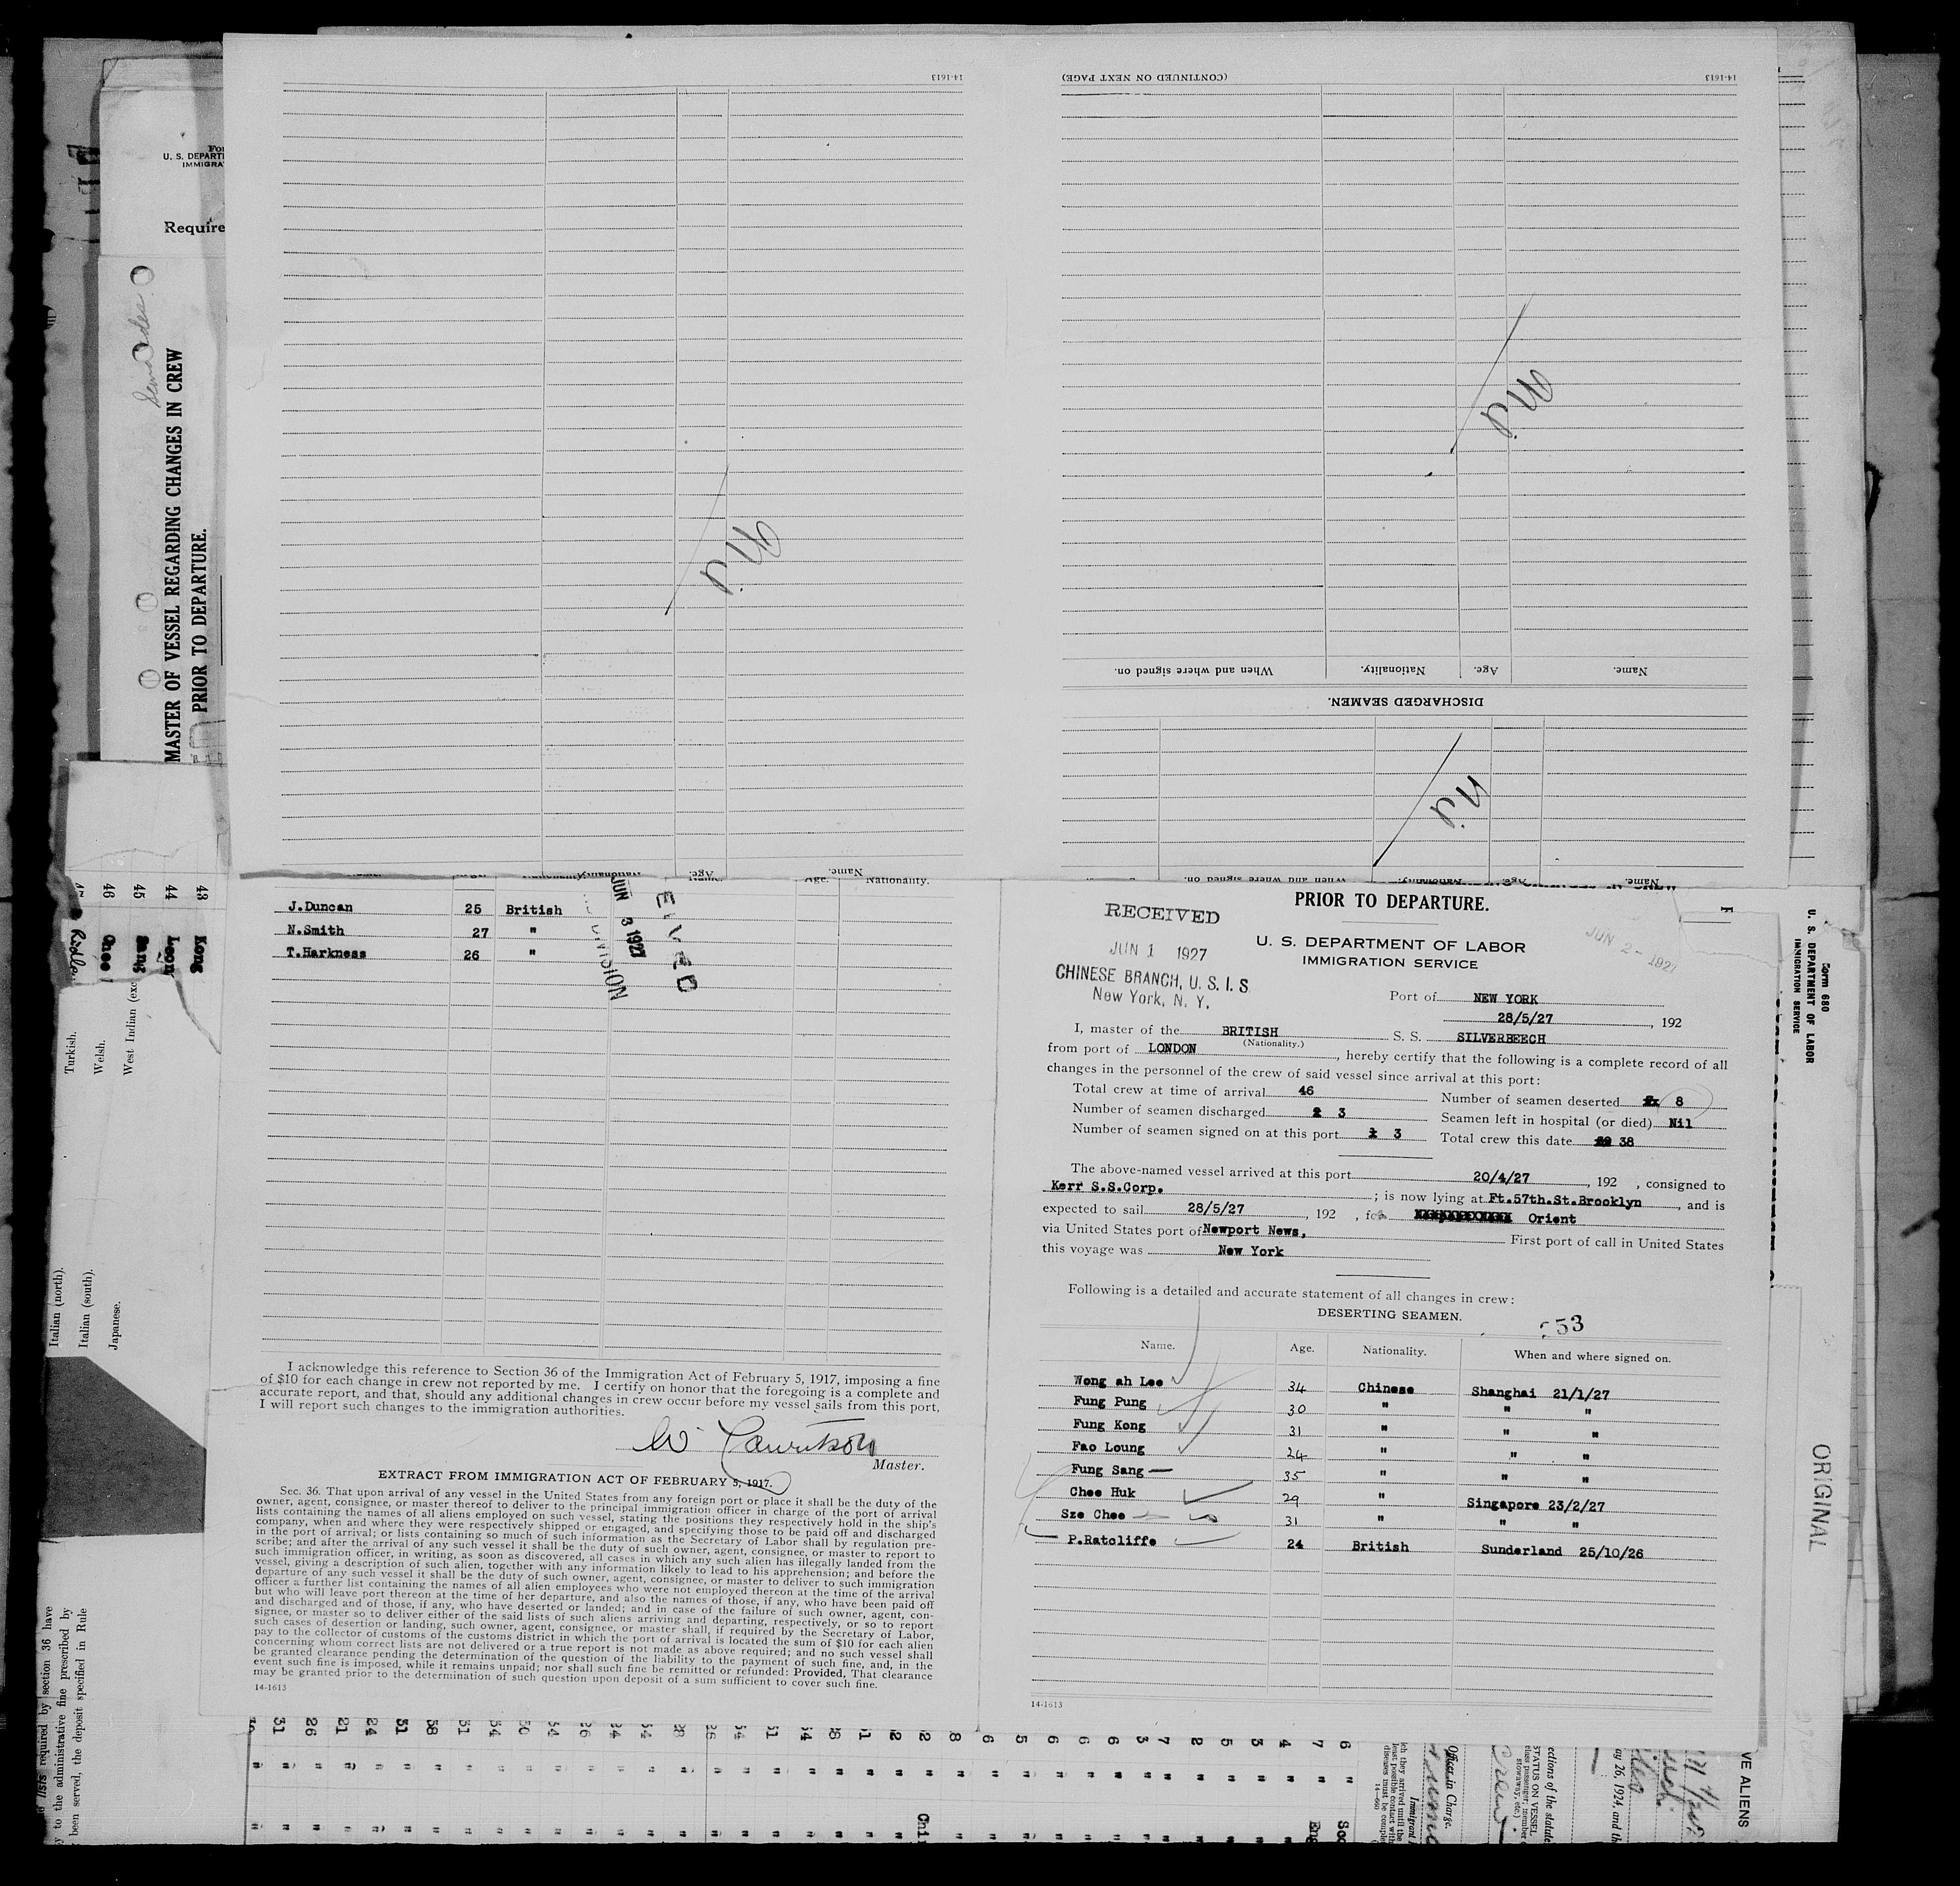 14-1613
(CONTINUED ON NEXT PAGE)
14-1613
Nil
Nil
When and where signed on.
Nationality.
Age.
Name.
DISCHARGED SEAMEN.
Nil
Name.
Age.
Nationality.
When and where signed on.
U. S. DEPARTM
IMMIGRA
Require
MASTER OF VESSEL REGARDING CHANGES IN CREW
PRIOR TO DEPARTURE.
46
45
44
43
Chee
Sang
Kong
Turkish.
Welsh.
West Indian (exc
Italian (north).
Italian (south).
Japanese.
lists required by section 36 have
to the administrative fine prescribed by
been served, the deposit specified in Rule
Age. Nationality.
J.Duncan 25 British
N.Smith 27 "
T.Harkness 26 "
JUN 3 1927
DIVISION
I acknowledge this reference to Section 36 of the Immigration Act of February 5, 1917, imposing a fine
of $10 for each change in crew not reported by me. I certify on honor that the foregoing is a complete and
accurate report, and that, should any additional changes in crew occur before my vessel sails from this port,
I will report such changes to the immigration authorities.
Master.
EXTRACT FROM IMMIGRATION ACT OF FEBRUARY 5, 1917.
Sec. 36. That upon arrival of any vessel in the United States from any foreign port or place it shall be the duty of the
owner, agent, consignee, or master thereof to deliver to the principal immigration officer in charge of the port of arrival
lists containing the names of all aliens employed on such vessel, stating the positions they respectively hold in the ship's
company, when and where they were respectively shipped or engaged, and specifying those to be paid off and discharged
in the port of arrival; or lists containing so much of such information as the Secretary of Labor shall by regulation pre-
scribe; and after the arrival of any such vessel it shall be the duty of such owner, agent, consignee, or master to report to
such immigration officer, in writing, as soon as discovered, all cases in which any such alien has illegally landed from the
vessel, giving a description of such alien, together with any information likely to lead to his apprehension; and before the
departure of any such vessel it shall be the duty of such owner, agent, consignee, or master to deliver to such immigration
officer a further list containing the names of all alien employees who were not employed thereon at the time of the arrival
but who will leave port thereon at the time of her departure, and also the names of those, if any, who have been paid off
and discharged and of those, if any, who have deserted or landed; and in case of the failure of such owner, agent, con-
signee, or master so to deliver either of the said lists of such aliens arriving and departing, respectively, or so to report
such cases of desertion or landing, such owner, agent, consignee, or master shall, if required by the Secretary of Labor,
pay to the collector of customs of the customs district in which the port of arrival is located the sum of $10 for each alien
concerning whom correct lists are not delivered or a true report is not made as above required; and no such vessel shall
be granted clearance pending the determination of the question of the liability to the payment of such fine, and, in the
event such fine is imposed, while it remains unpaid; nor shall such fine be remitted or refunded: Provided, That clearance
may be granted prior to the determination of such question upon deposit of a sum sufficient to cover such fine.
14-1613
PRIOR TO DEPARTURE.
RECEIVED
JUN 1 1927
CHINESE BRANCH, U. S. I. S
New York, N. Y.
JUN 2 - 1927
U. S. DEPARTMENT OF LABOR
IMMIGRATION SERVICE
Port of NEW YORK
28/5/27, 192
I, master of the BRITISH S. S. SILVERBEECH
(Nationality.)
from port of LONDON, hereby certify that the following is a complete record of all
changes in the personnel of the crew of said vessel since arrival at this port:
Total crew at time of arrival 46
Number of seamen deserted 8
Number of seamen discharged 3
Seamen left in hospital (or died) Nil
Number of seamen signed on at this port 3
Total crew this date 38
The above-named vessel arrived at this port 20/4/27, 192 , consigned to
Kerr S.S.Corp. ; is now lying at Ft.57th.St.Brooklyn, and is
expected to sail 28/5/27, 192 , for Orient
via United States port of Newport News, First port of call in United States
this voyage was New York
Following is a detailed and accurate statement of all changes in crew:
DESERTING SEAMEN.
53
Name. Age. Nationality. When and where signed on.
Wong ah Lee 34 Chinese Shanghai 21/1/27
Fung Pung 30 " " "
Fung Kong 31 " " "
Fao Loung 24 " " "
Fung Sang 35 " " "
Chee Huk 29 " Singapore 23/2/27
Sze Chee 31 " " "
P.Ratcliffe 24 British Sunderland 25/10/26
14-1613
Form 680
U. S. DEPARTMENT OF LABOR
IMMIGRATION SERVICE
ORIGINAL
VE ALIENS
Officer in Charge.
ections of the statute
STATUS ON VESSEL
ay 26, 1924, and th
14-660